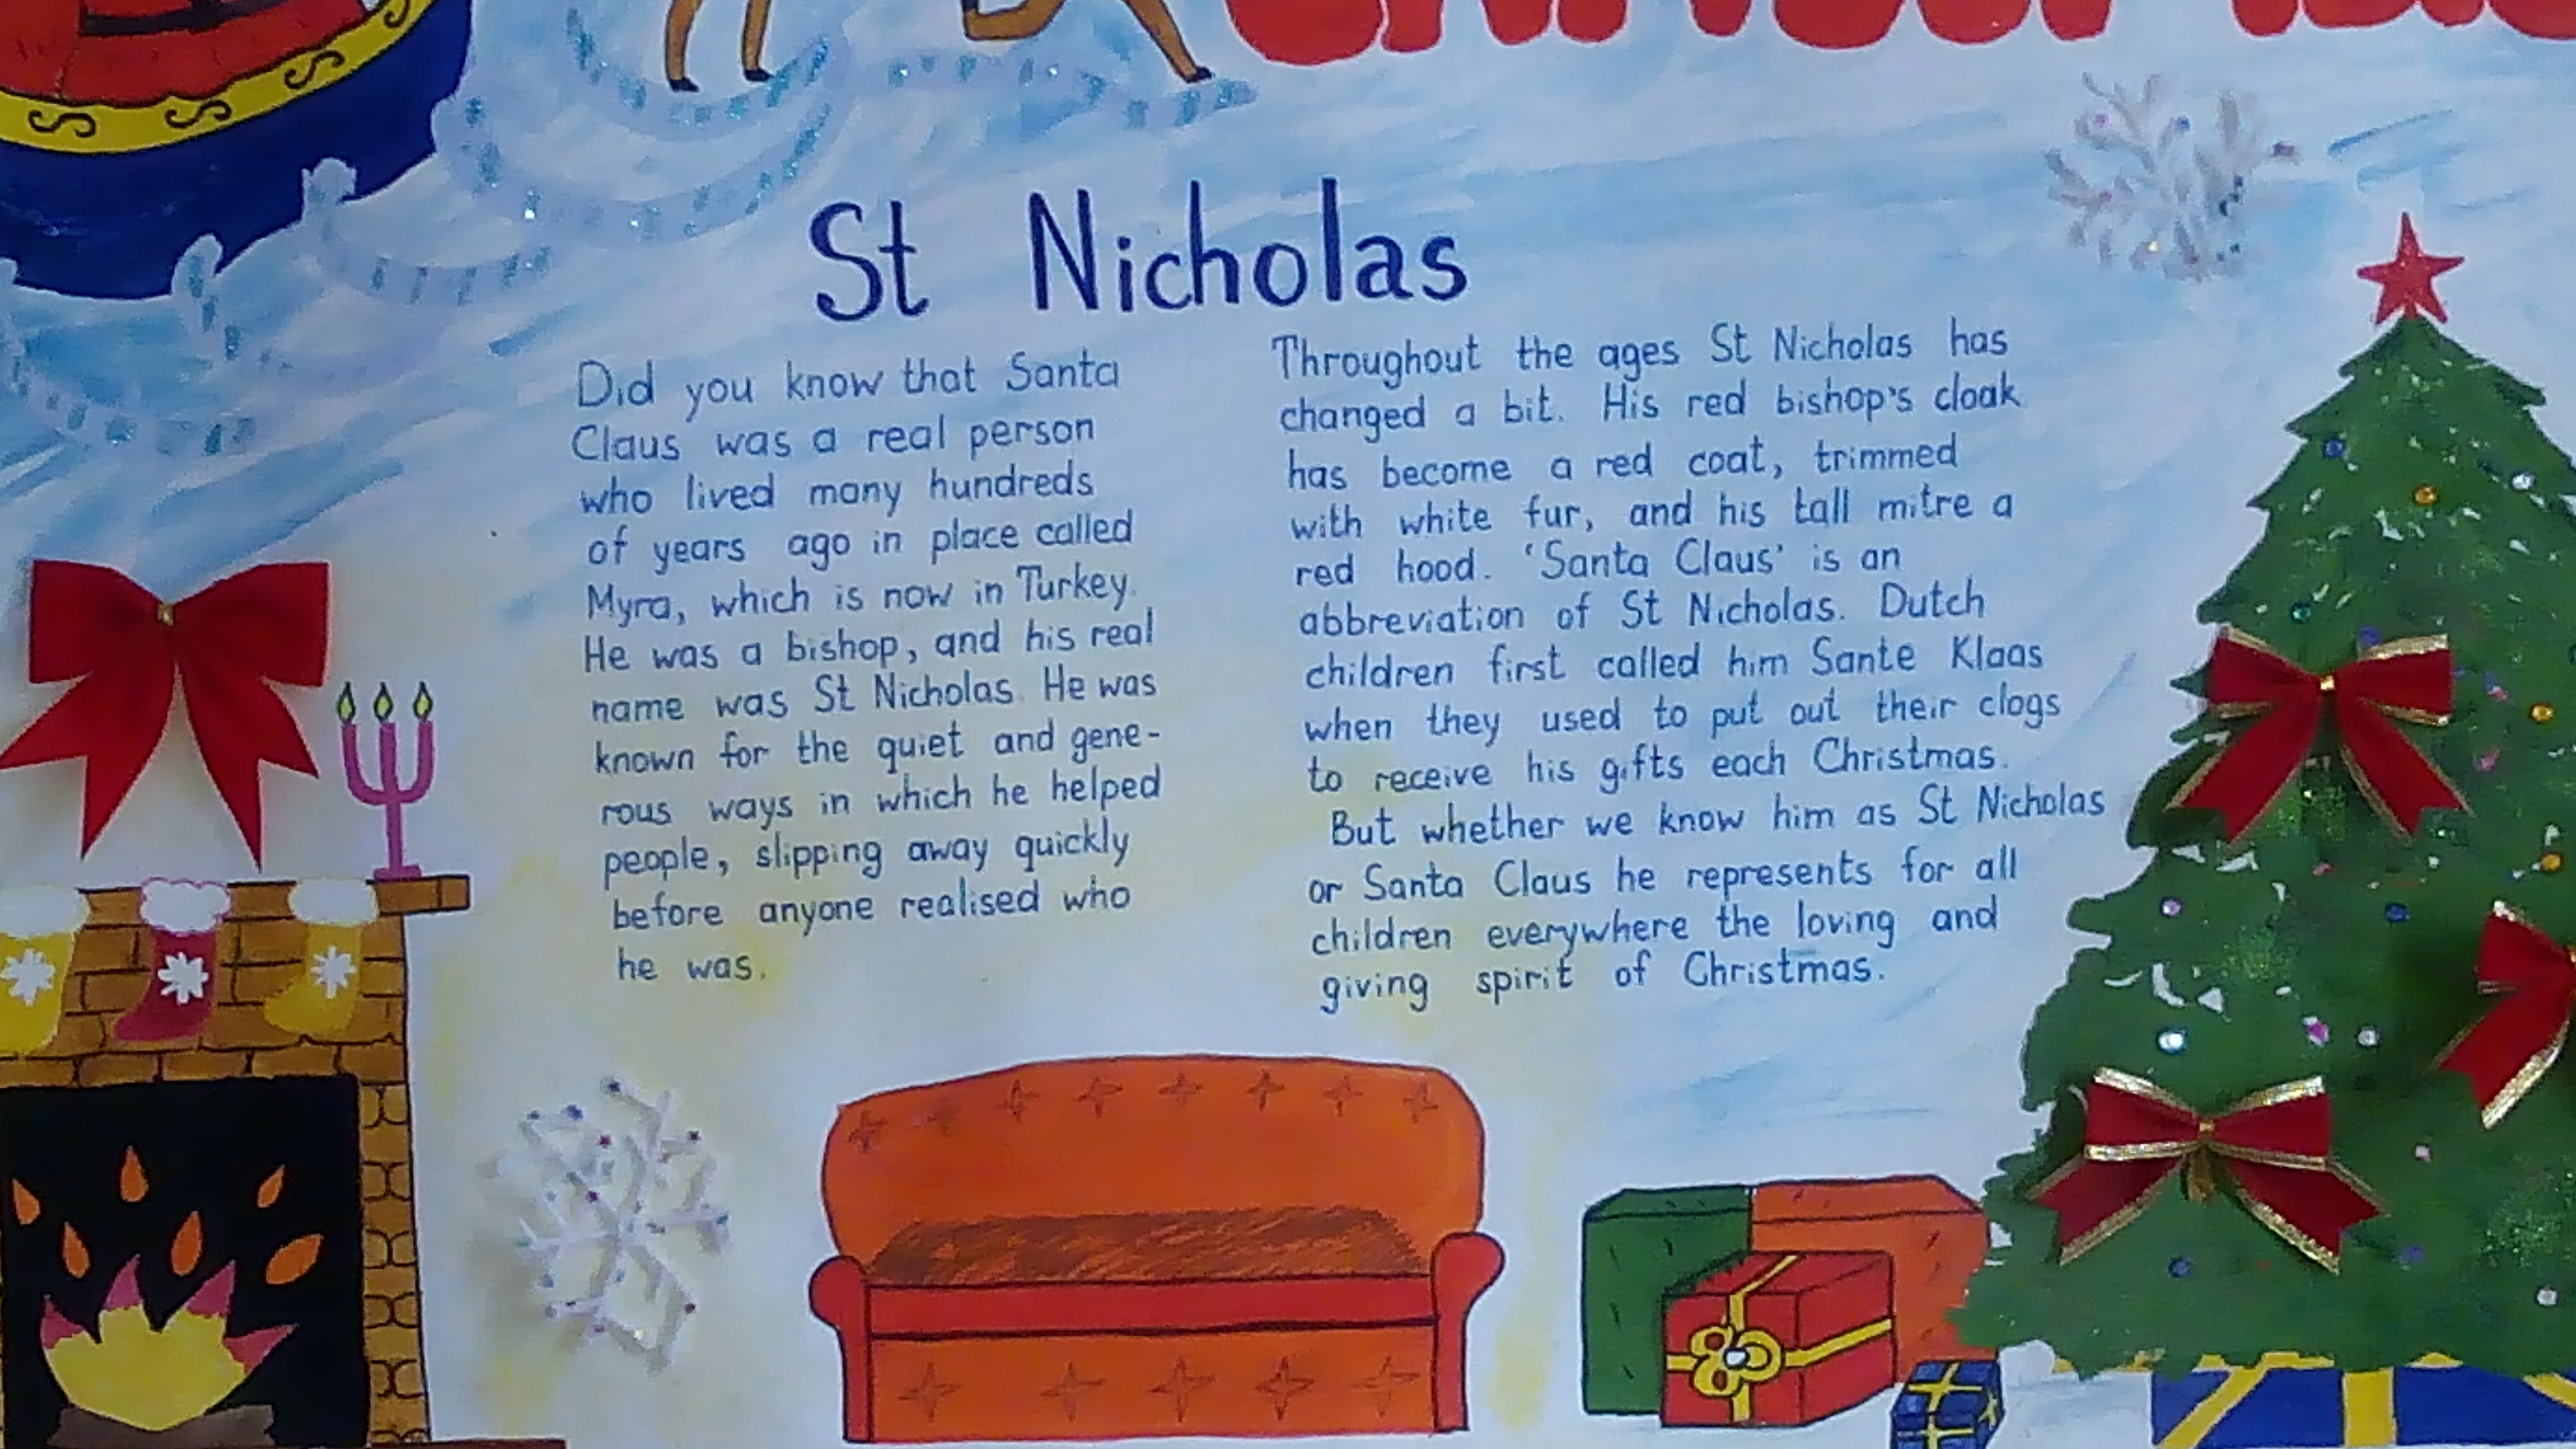 St Nicholas
Did you know that Santa
Claus was a real person
who lived many hundreds
of years ago in place called
Myra, which is now in Turkey.
He was a bishop, and his real
name was St Nicholas. He was
known for the quiet and gene-
rous ways in which he helped
people, slipping away quickly
before anyone realised who
he was.
Throughout the ages St Nicholas has
changed a bit. His red bishop's cloak
has become a red coat, trimmed
with white fur, and his tall mitre a
red hood. 'Santa Claus' is an
abbreviation of St Nicholas. Dutch
children first called him Sante Klaas
when they used to put out their clogs
to receive his gifts each Christmas.
But whether we know him as St Nicholas
or Santa Claus he represents for all
children everywhere the loving and
giving spirit of Christmas.